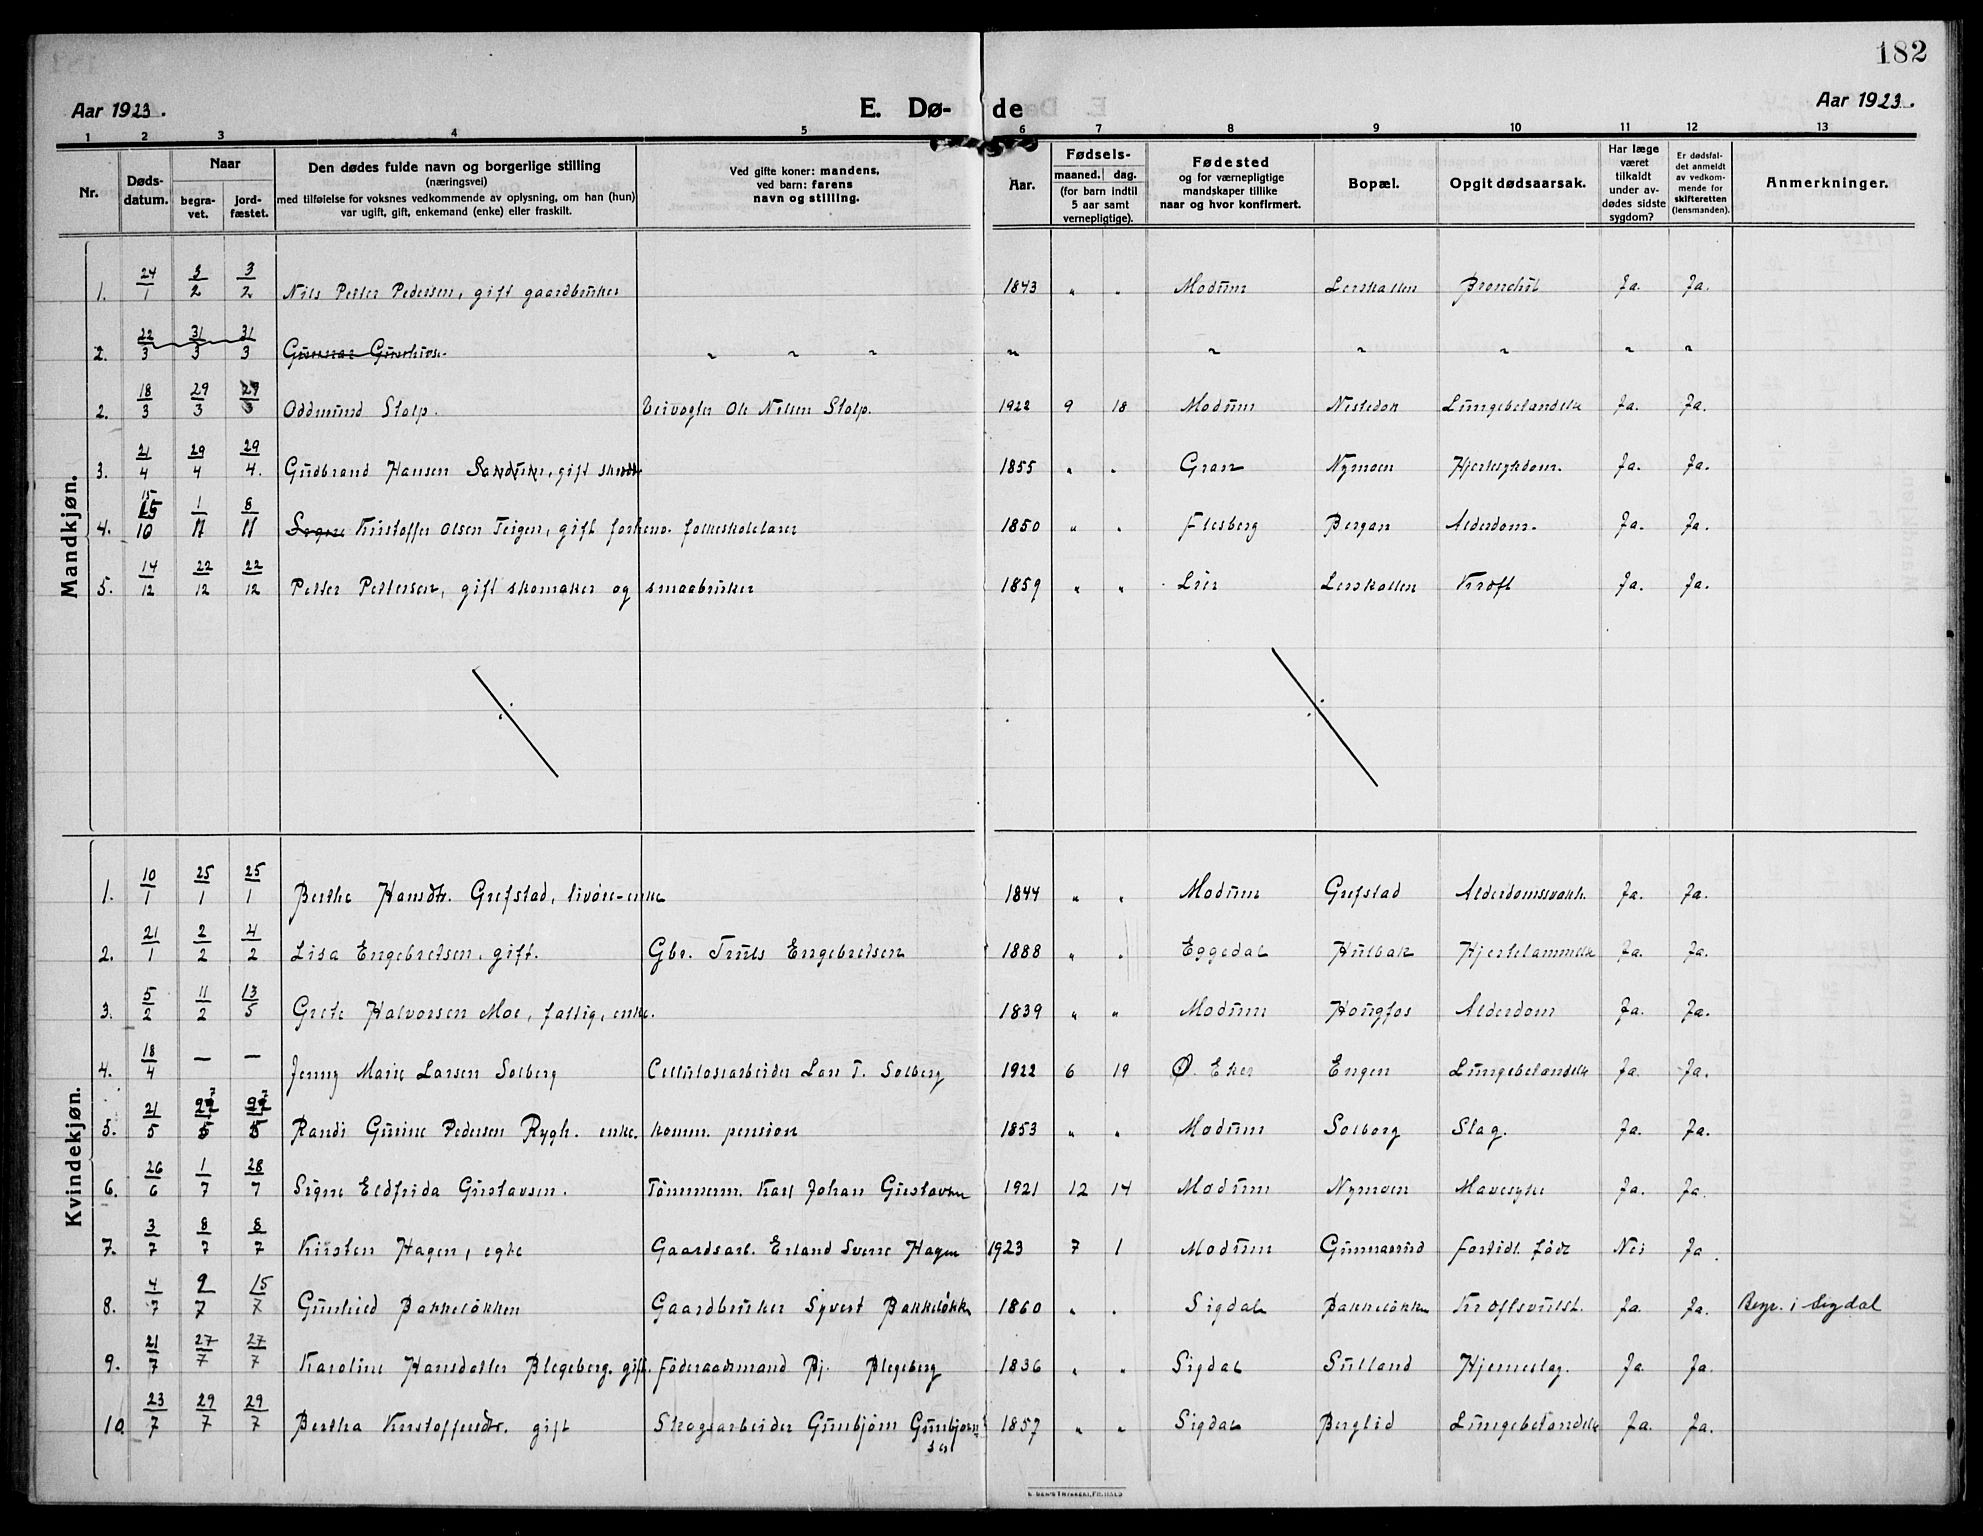 182
Aar 1923.
E. Dø- de
Aar 1923.
1 2 3 4 5 6 7 8 9 10 11 12 13
Nr.
Døds-
datum.
Naar
begra-
vet.
jord-
fæstet.
Den dødes fulde navn og borgerlige stilling
(næringsvei)
med tilføielse for voksnes vedkommende av oplysning, om han (hun)
var ugift, gift, enkemand (enke) eller fraskilt.
Ved gifte koner: mandens,
ved barn: farens
navn og stilling.
Aar.
Fødsels-
maaned. dag.
(for barn indtil
5 aar samt
vernepligtige).
Fødested
og for værnepligtige
mandskaper tillike
naar og hvor konfirmert.
Bopæl.
Opgit dødsaarsak.
Har læge
været
tilkaldt
under av-
dødes sidste
sygdom?
Er dødsfal-
det anmeldt
av vedkom-
mende for
skifteretten
(lensmanden).
Anmerkninger.
Mandkjøn.
1. 24/1 3/2 3/2 Nils Petter Pedersen, gift gaardbruker 1843 " " Modum Lerskallen Bronchit Ja. Ja.
2. 22/3 31/3 31/3 Gunnar " " " " " " " " "
2. 18/3 29/3 29/3 Oddmund Stolp. Veivogter Ole Nilsen Stolp. 1922 9 18 Modum Nestedok Lungebetændelse Ja. Ja.
3. 21/4 29/4 29/4. Gudbrand Hansen Sandum, gift 1855 " " Gran Nymoen Hjertesykdom. Ja. Ja.
4. 15/10 1/11 8/11 Kristoffer Olsen Teigen, gift forhenv. folkeskolelærer 1850 " " Flesberg Bergan Alderdom. Ja. Ja.
5. 14/12 22/12 22/12 Petter Pettersen, gift skomaker og smaabruker 1859 " " Lier Lerskallen Kræft Ja. Ja.
Kvindekjøn.
1. 10/1 25/1 25/1 Berthe Hansdtr. Grefstad, livøre-enke 1844 " " Modum Grefstad Alderdomssvakh. Ja. Ja.
2. 21/1 2/2 4/2 Lisa Engebretsen, gift. Gbr. Truls Engebretsen 1888 " " Eggedal Hulbak Hjertelammelse Ja. Ja.
3. 5/2 11/2 13/5 Grete Halvorsen Moe, fattig, enke. 1839 " " Modum Hougfos Alderdom Ja. Ja.
4. 18/4 — — Jenny Marie Larsen Solberg Cellulosearbeider Lars T. Solberg 1922 6 19 Ø. Eker Engen Lungebetændelse Ja. Ja.
5. 21/5 27/5 27/5 Randi Gurine Pedersen Rygh. enke. komm. pension 1853 " " Modum Solberg Slag. Ja. Ja.
6. 26/6 1/7 28/7 Signe Eldfrida Gustavsen. Tømmerm. Karl Johan Gustavsen 1921 12 14 Modum Nymoen Mavesyke Ja. Ja.
7. 3/7 8/7 8/7 Kirsten Hagen, egte Gaardsarb. Erland Sverre Hagen 1923 7 1 Modum Gunnarud Fortidl. født Nei Ja.
8. 4/7 9/7 15/7 Gunhild Bakkeløkken Gaardbruker Syvert Bakkeløkk 1860 " " Sigdal Bakkeløkken Kræftsvulst. Ja. Ja. Begr. i Sigdal
9. 21/7 27/7 27/7 Karoline Hansdatter Blegeberg. gift. Føderaadsmand Bj. Blegeberg 1836 " " Sigdal Sulland Hjerneslag. Ja Ja.
10. 23/7 29/7 29/7 Bertha Kristoffersdtr. gift Skogsarbeider Gunbjørn Gunbjørn-
sen 1857 " " Sigdal Berglid Lungebetændelse Ja. Ja.